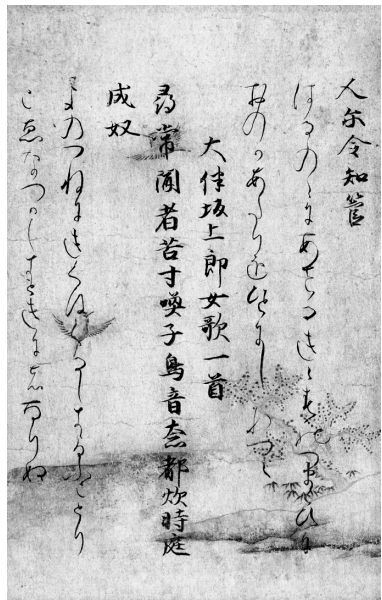 人尓令知管
はるのゝにあさるきゝすのつまこひに
おのかあたりをひとにしれつゝ
大伴坂上郎女歌一首
尋常聞者苦寸喚子鳥音奈都炊時庭
成奴
よのつねにきくはくるしきよふことり
こゑなつかしきときにはなりぬ